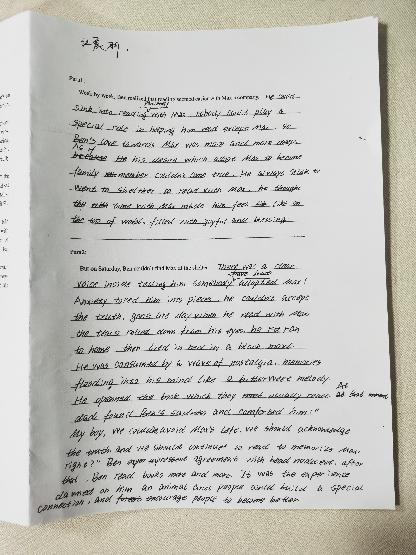 Para1:
Week by week, Ben realized that reading seemed easier with Max's company. He could
sink into reading with Max. Nobody could play a
special role in helping him read except Max. So
Ben's love towards Max was more and more deep.
As if his desire which adopt Max to become
family member couldn't come true. He always
went to shelter to read with Max. he thought
time with Max made him feel like on
the top of world, filled with joyful and blessing
Para2:
But on Saturday, Ben couldn't find Max at the shelter. There was a clear
voice inside telling him somebody have adopted Max!
Anxiety tored him into pieces. he couldn't accept
the truth, gone the day when he read with Max
the tears rolled down from his eyes. he ran
to home then lied in bed in a black mood.
He was consumed by a wave of nostalgia. memories
flooding into his mind like a bittersweet melody
He opened the book which they usually read. At that moment
dad found Ben's sadness and comforted him: "
My boy, we could Max's life. we should acknowledge
the truth and we should continue to read to memorize Max.
right?" Ben agreement with head nodded. after
that, Ben read books more and more. It was the experience
dawned on him an animal and people could build a special
connection, and encourage people to become better